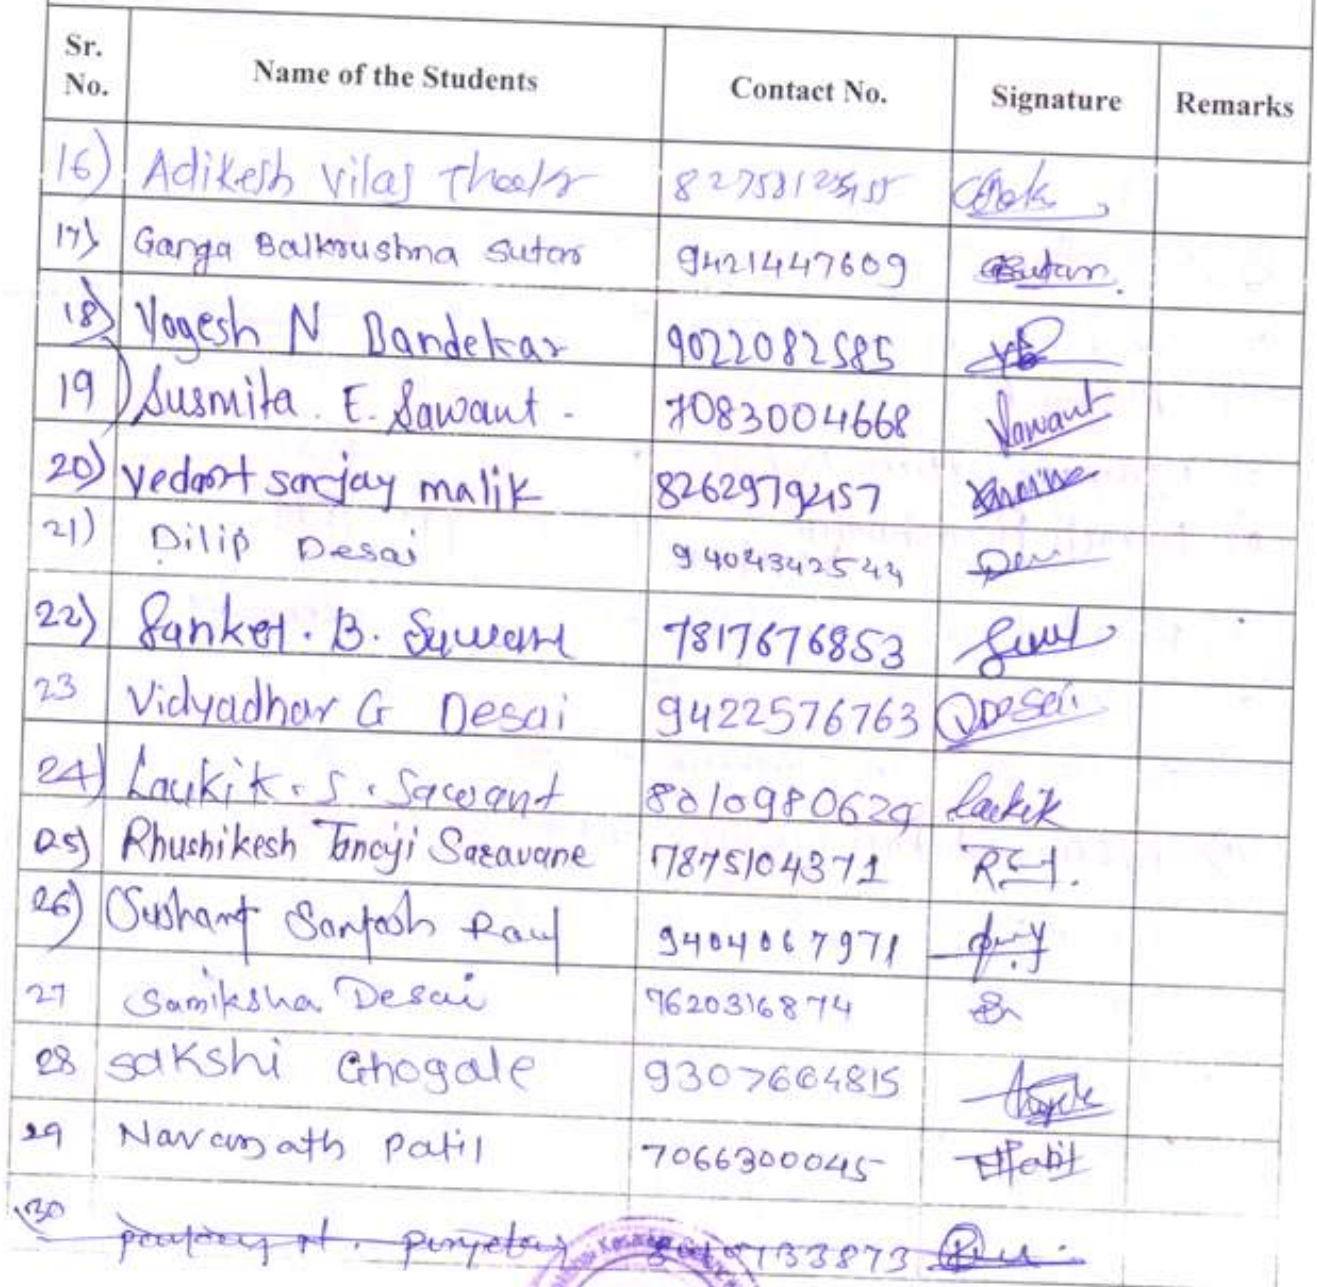 Sr. No. Name of the Students Contact No. Signature Remarks
16) Adikesh Vilas
17) Ganga Balkrushna Sutar 9421447609 Sutar
18) Yogesh N Dandekar 9022082585
19) Susmita. E. Sawant. 7083004668 Sawant
20) vedant sanjay malik 8262979457
21) Dilip Desai 9404342544
22) Sanket. B. Sawant 7817676853
23 Vidyadhar G Desai 9422576763 Desai
24) Laukik. S. Sawant 8010980629 Laukik
25) Rhushikesh Tanaji Saravane 7875104371
26) Sushant Santosh Raul 9404067971
27 Samiksha Desai 7620316874
28 Sakshi Ghogale 9307664815
29 Navanath Patil 7066300045 Patil
30